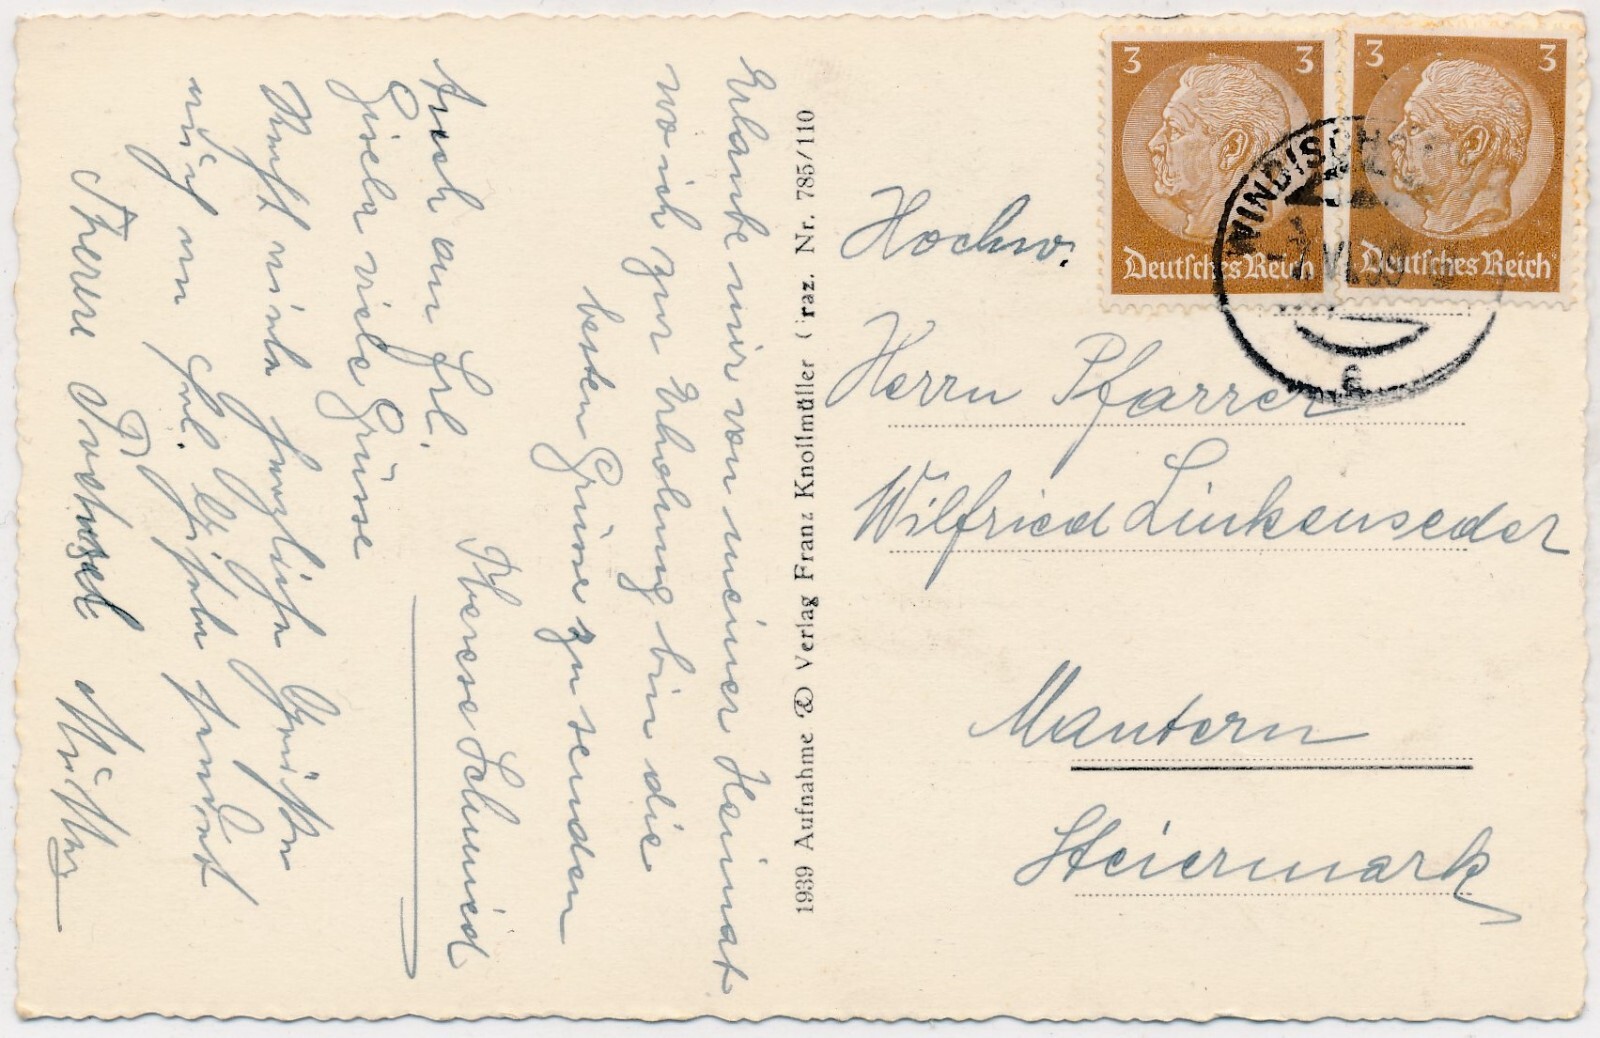 Erlaube mir von meiner Heimat
wo ich zur Erholung bin die
besten Grüsse zu senden
Therese Schmied
Auch an Frl.
Gisela viele Grüsse
Auch viele herzliche Grüße
auch an Frl. Gisela sendet
Mutter
1939 Aufnahme & Verlag Franz Knollmüller Graz. Nr. 785/110
3 3
Deutsches Reich
3 3
Deutsches Reich
WINDISCH
VI.39
Hochw.
Herrn Pfarrer
Wilfried Linkenseder
Mautern
Steiermark